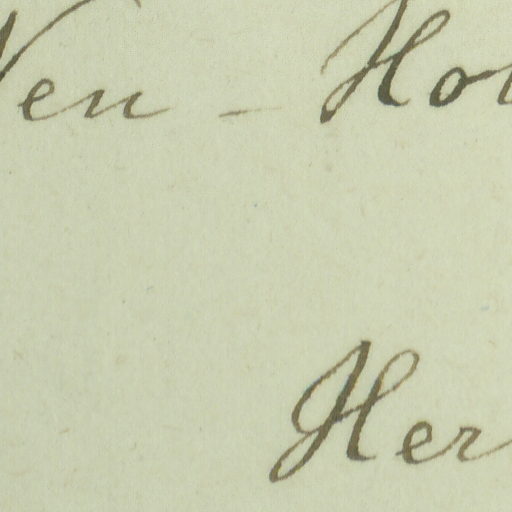 Neu - Hol
Her